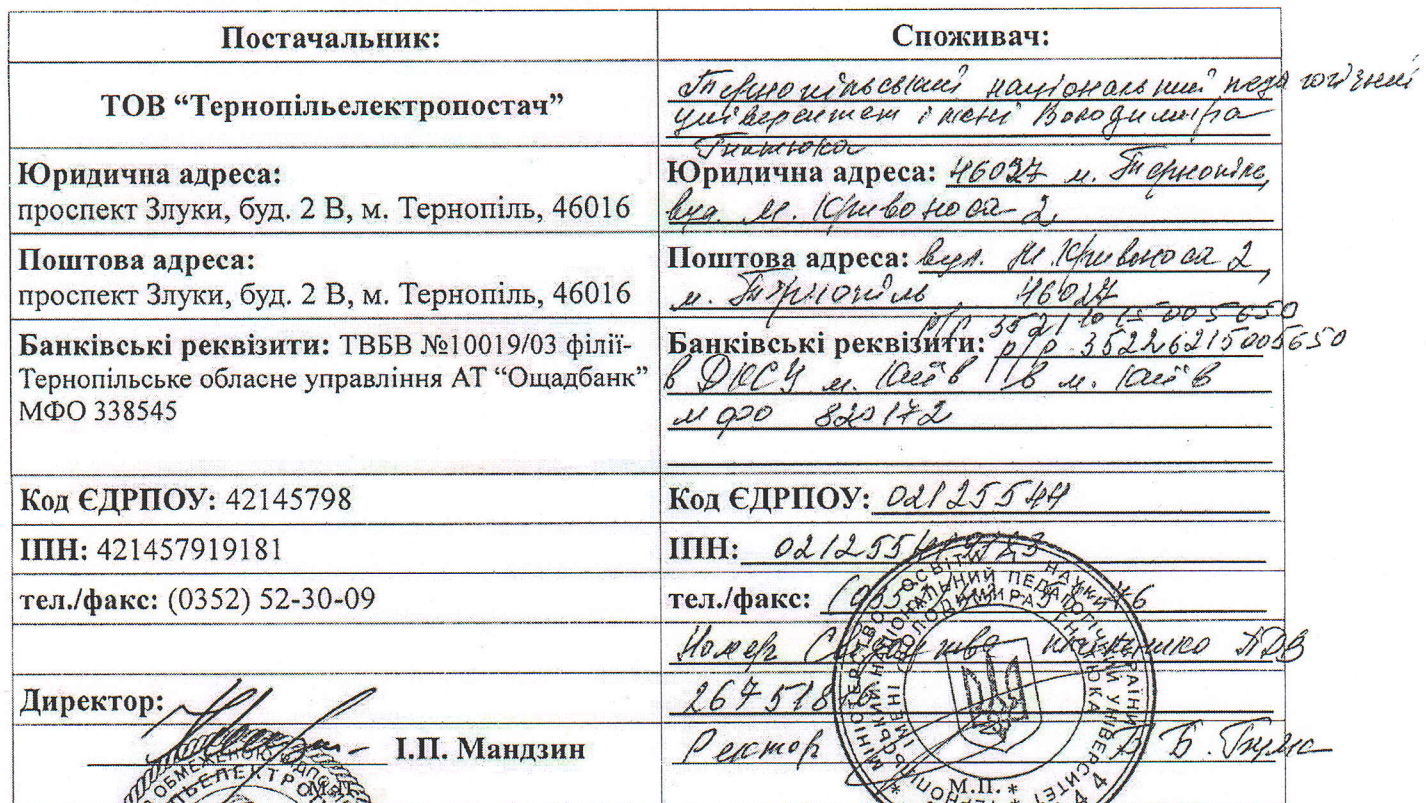 Постачальник:
Споживач:
ТОВ “Тернопільелектропостач”
Тернопільський національний педагогічний
університет імені Володимира
Гнатюка
Юридична адреса:
проспект Злуки, буд. 2 В, м. Тернопіль, 46016
Юридична адреса: 46027 м. Тернопіль,
вул. М. Кривоноса 2
Поштова адреса:
проспект Злуки, буд. 2 В, м. Тернопіль, 46016
Поштова адреса: вул. М. Кривоноса 2,
м. Тернопіль 46027
Банківські реквізити: ТВБВ №10019/03 філії-
Тернопільське обласне управління АТ “Ощадбанк”
МФО 338545
Банківські реквізити: р/р 35226215005650
в ДКСУ м. Київ в м. Київ
МФО 820172
Код ЄДРПОУ: 42145798
Код ЄДРПОУ: 02125544
ІПН: 421457919181
ІПН:
тел./факс: (0352) 52-30-09
тел./факс:
Номер Свідоцтва платника ПДВ
Директор:
І.П. Мандзин
Ректор Б. Буяк
М.П.
МІНІСТЕРСТВО ОСВІТИ І НАУКИ УКРАЇНИ
НАЦІОНАЛЬНИЙ ПЕДАГОГІЧНИЙ УНІВЕРСИТЕТ
ІМЕНІ ВОЛОДИМИРА ГНАТЮКА